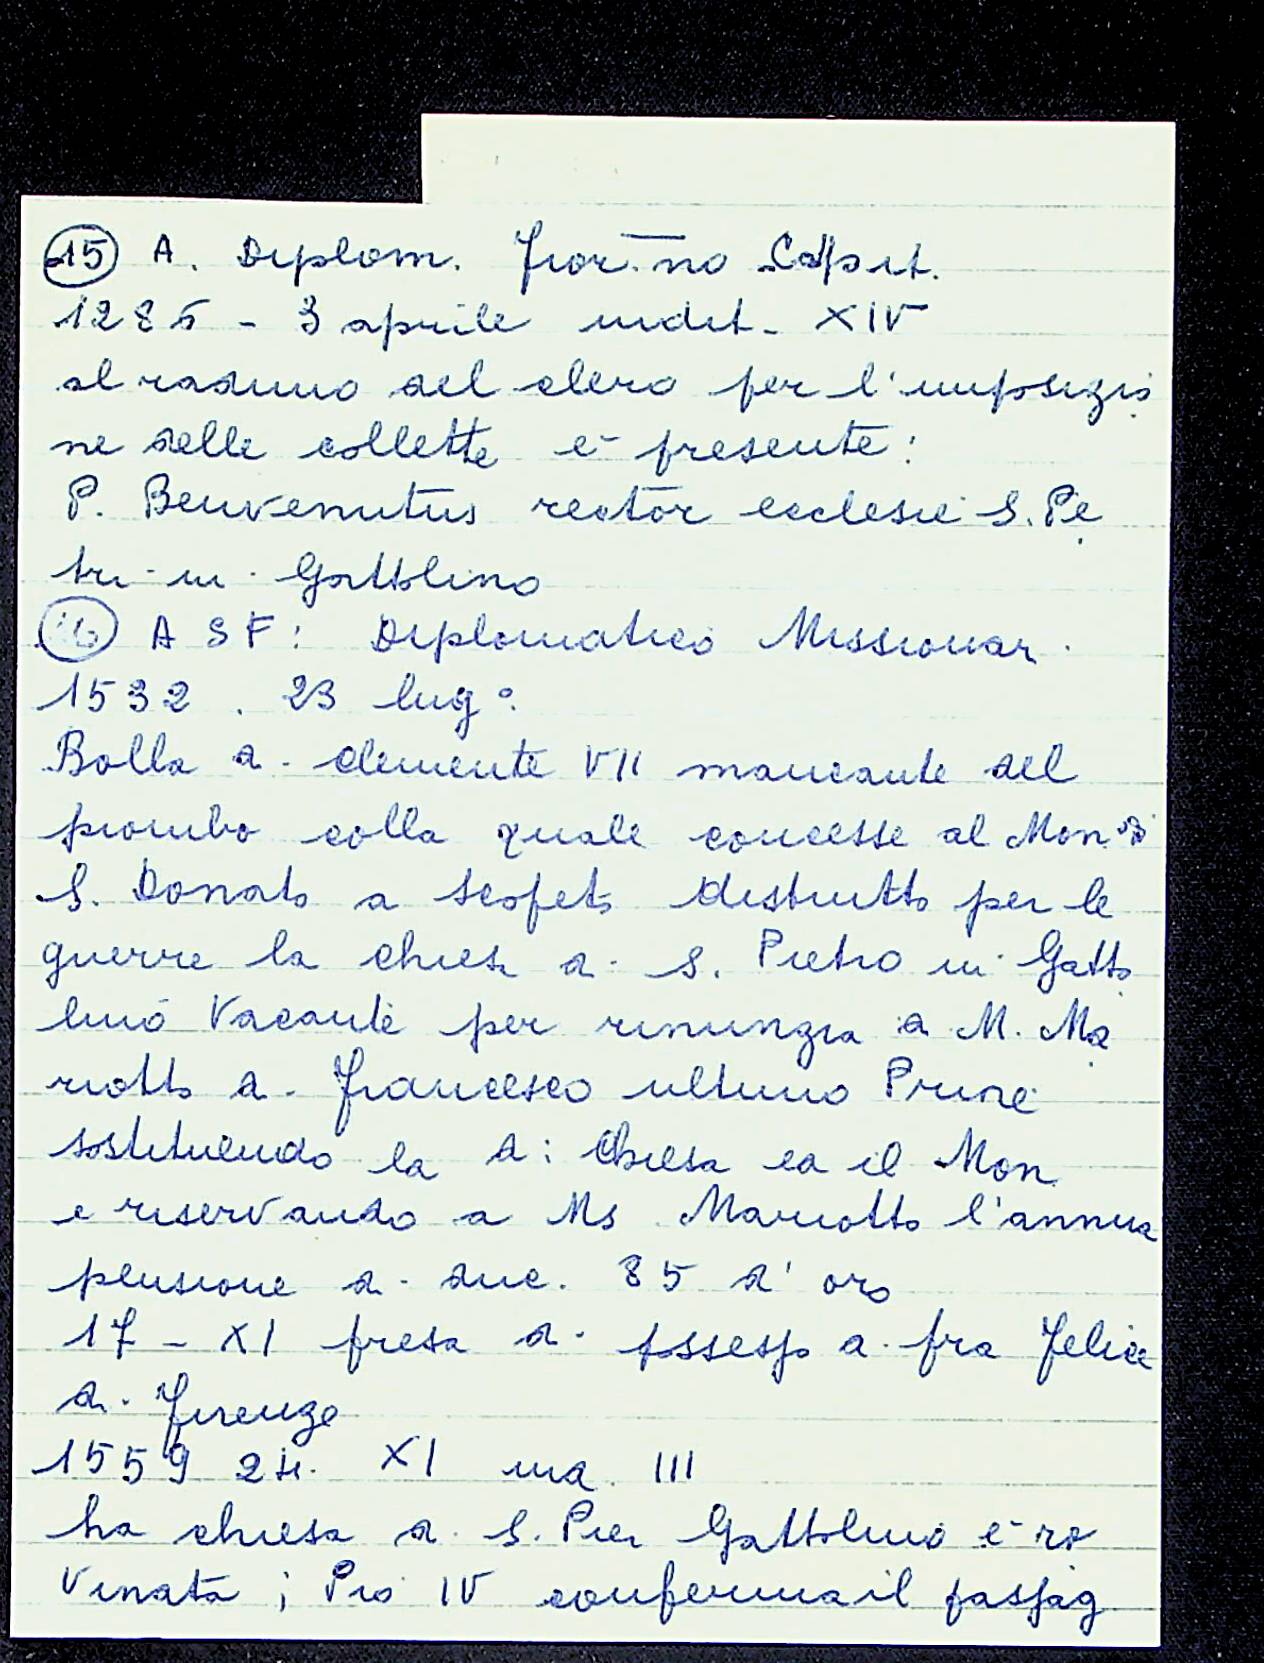 15 A. Diplom. Fior.no Capit.
1285 - 3 aprile indit. XIV
al raduno del clero per l'imposizio
ne delle collette è presente:
P. Benvenutus rector ecclesie S. Pe
tri in Gattolino
16 A S F: Diplomatico Missionar.
1532. 23 lug°.
Bolla d. Clemente VII mancante del
piombo colla quale concesse al Mon. di
S. Donato a Scopeto distrutto per le
guerre la chiesa d. S. Pietro in Gatto
lino vacante per rinunzia d M. Ma
riotto d. Francesco ultimo Priore
sostituendo la d: Chiesa ed il Mon.
e riservando a Ms Mariotto l'annua
pensione d. duc. 85 d'oro
17 - XI presa d. possesso d. fra Felice
d. Firenze
1559 24. XI ind. III
ha chiesa d. S. Pier Gattolino è ro
vinata; Pio IV conferma il passag